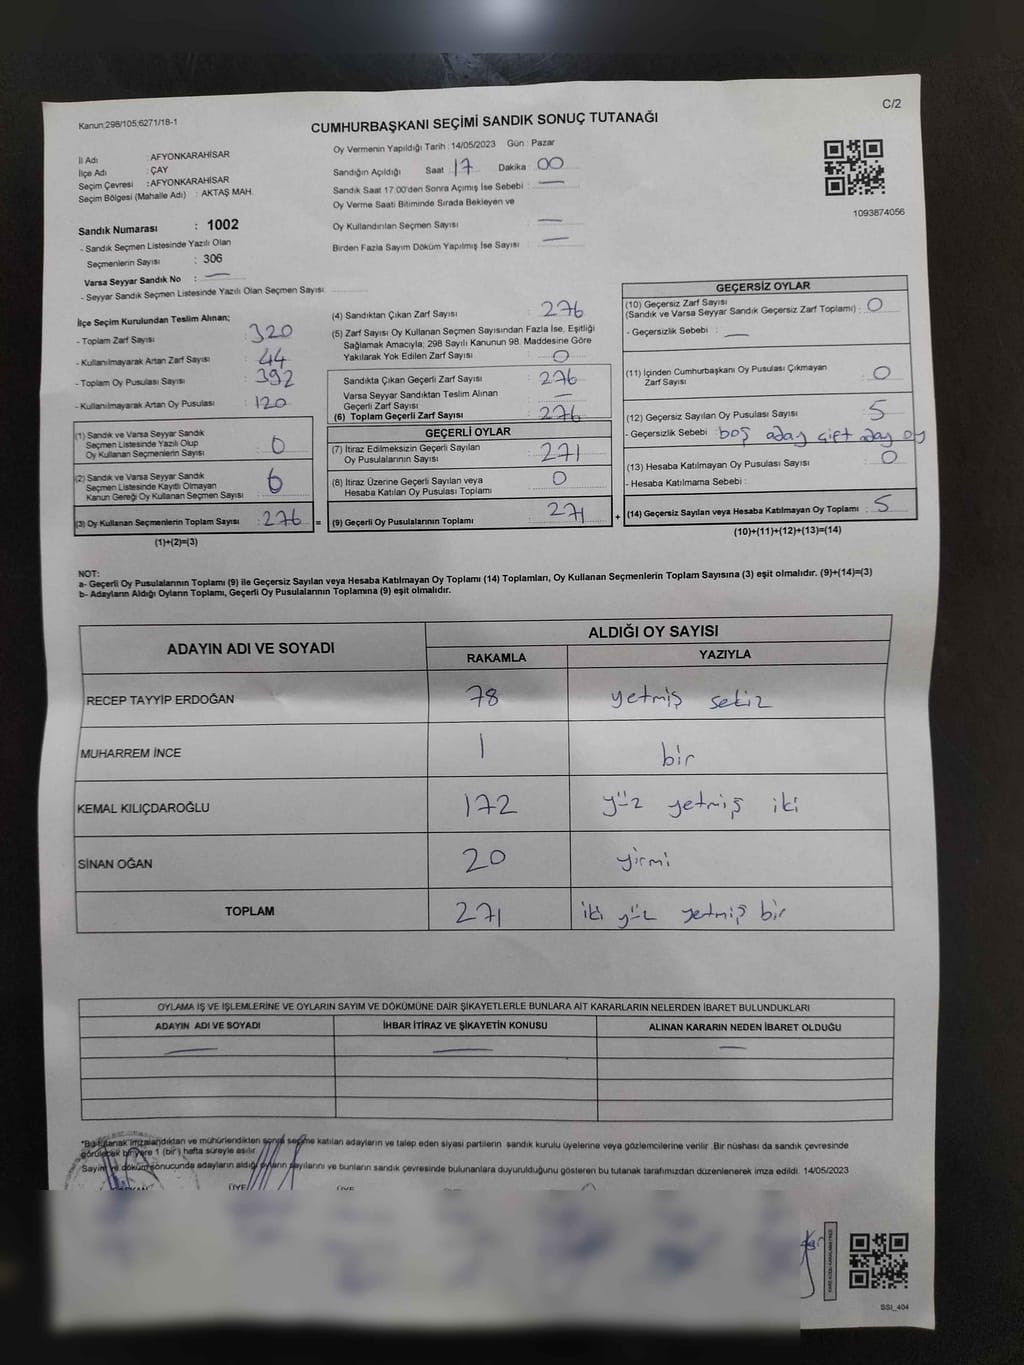 C/2
Kanun:298/105;6271/18-1
CUMHURBAŞKANI SEÇİMİ SANDIK SONUÇ TUTANAĞI
İl Adı : AFYONKARAHİSAR
İlçe Adı : ÇAY
Seçim Çevresi : AFYONKARAHİSAR
Seçim Bölgesi (Mahalle Adı) : AKTAŞ MAH.
Oy Vermenin Yapıldığı Tarih : 14/05/2023 Gün : Pazar
Sandığın Açıldığı Saat 17 Dakika : 00
Sandık Saat 17:00'den Sonra Açımış İse Sebebi : —
Oy Verme Saati Bitiminde Sırada Bekleyen ve
Oy Kullandırılan Seçmen Sayısı : —
Birden Fazla Sayım Döküm Yapılmış İse Sayısı : —
1093874056
Sandık Numarası : 1002
- Sandık Seçmen Listesinde Yazılı Olan
Seçmenlerin Sayısı : 306
Varsa Seyyar Sandık No : —
- Seyyar Sandık Seçmen Listesinde Yazılı Olan Seçmen Sayısı:
İlçe Seçim Kurulundan Teslim Alınan;
- Toplam Zarf Sayısı : 320
- Kullanılmayarak Artan Zarf Sayısı : 44
- Toplam Oy Pusulası Sayısı : 392
- Kullanılmayarak Artan Oy Pusulası : 120
(1) Sandık ve Varsa Seyyar Sandık
Seçmen Listesinde Yazılı Olup
Oy Kullanan Seçmenlerin Sayısı : 0
(2) Sandık ve Varsa Seyyar Sandık
Seçmen Listesinde Kayıtlı Olmayan
Kanun Gereği Oy Kullanan Seçmen Sayısı : 6
(3) Oy Kullanan Seçmenlerin Toplam Sayısı : 276 =
(1)+(2)=(3)
(4) Sandıktan Çıkan Zarf Sayısı : 276
(5) Zarf Sayısı Oy Kullanan Seçmen Sayısından Fazla İse, Eşitliği
Sağlamak Amacıyla; 298 Sayılı Kanunun 98. Maddesine Göre
Yakılarak Yok Edilen Zarf Sayısı : 0
Sandıkta Çıkan Geçerli Zarf Sayısı : 276
Varsa Seyyar Sandıktan Teslim Alınan
Geçerli Zarf Sayısı : —
(6) Toplam Geçerli Zarf Sayısı : 276
GEÇERLİ OYLAR
(7) İtiraz Edilmeksizin Geçerli Sayılan
Oy Pusulalarının Sayısı : 271
(8) İtiraz Üzerine Geçerli Sayılan veya
Hesaba Katılan Oy Pusulası Toplamı : 0
(9) Geçerli Oy Pusulalarının Toplamı : 271 +
GEÇERSİZ OYLAR
(10) Geçersiz Zarf Sayısı
(Sandık ve Varsa Seyyar Sandık Geçersiz Zarf Toplamı) : 0
- Geçersizlik Sebebi : —
(11) İçinden Cumhurbaşkanı Oy Pusulası Çıkmayan
Zarf Sayısı : 0
(12) Geçersiz Sayılan Oy Pusulası Sayısı : 5
- Geçersizlik Sebebi : boş aday çift aday oy
(13) Hesaba Katılmayan Oy Pusulası Sayısı : 0
- Hesaba Katılmama Sebebi :
(14) Geçersiz Sayılan veya Hesaba Katılmayan Oy Toplamı : 5
(10)+(11)+(12)+(13)=(14)
NOT:
a- Geçerli Oy Pusulalarının Toplamı (9) ile Geçersiz Sayılan veya Hesaba Katılmayan Oy Toplamı (14) Toplamları, Oy Kullanan Seçmenlerin Toplam Sayısına (3) eşit olmalıdır. (9)+(14)=(3)
b- Adayların Aldığı Oyların Toplamı, Geçerli Oy Pusulalarının Toplamına (9) eşit olmalıdır.
ADAYIN ADI VE SOYADI ALDIĞI OY SAYISI
RAKAMLA YAZIYLA
RECEP TAYYİP ERDOĞAN 78 yetmiş sekiz
MUHARREM İNCE 1 bir
KEMAL KILIÇDAROĞLU 172 yüz yetmiş iki
SİNAN OĞAN 20 yirmi
TOPLAM 271 iki yüz yetmiş bir
OYLAMA İŞ VE İŞLEMLERİNE VE OYLARIN SAYIM VE DÖKÜMÜNE DAİR ŞİKAYETLERLE BUNLARA AİT KARARLARIN NELERDEN İBARET BULUNDUKLARI
ADAYIN ADI VE SOYADI İHBAR İTİRAZ VE ŞİKAYETİN KONUSU ALINAN KARARIN NEDEN İBARET OLDUĞU
— — —
*Bu tutanak imzalandıktan ve mühürlendikten sonra seçime katılan adayların ve talep eden siyasi partilerin sandık kurulu üyelerine veya gözlemcilerine verilir .Bir nüshası da sandık çevresinde
görülecek bir yere 1 (bir) hafta süreyle asılır.
Sayım ve döküm sonucunda adayların aldığı oyların sayılarını ve bunların sandık çevresinde bulunanlara duyurulduğunu gösteren bu tutanak tarafımızdan düzenlenerek imza edildi. 14/05/2023
ÜYE ÜYE
SSİ_404